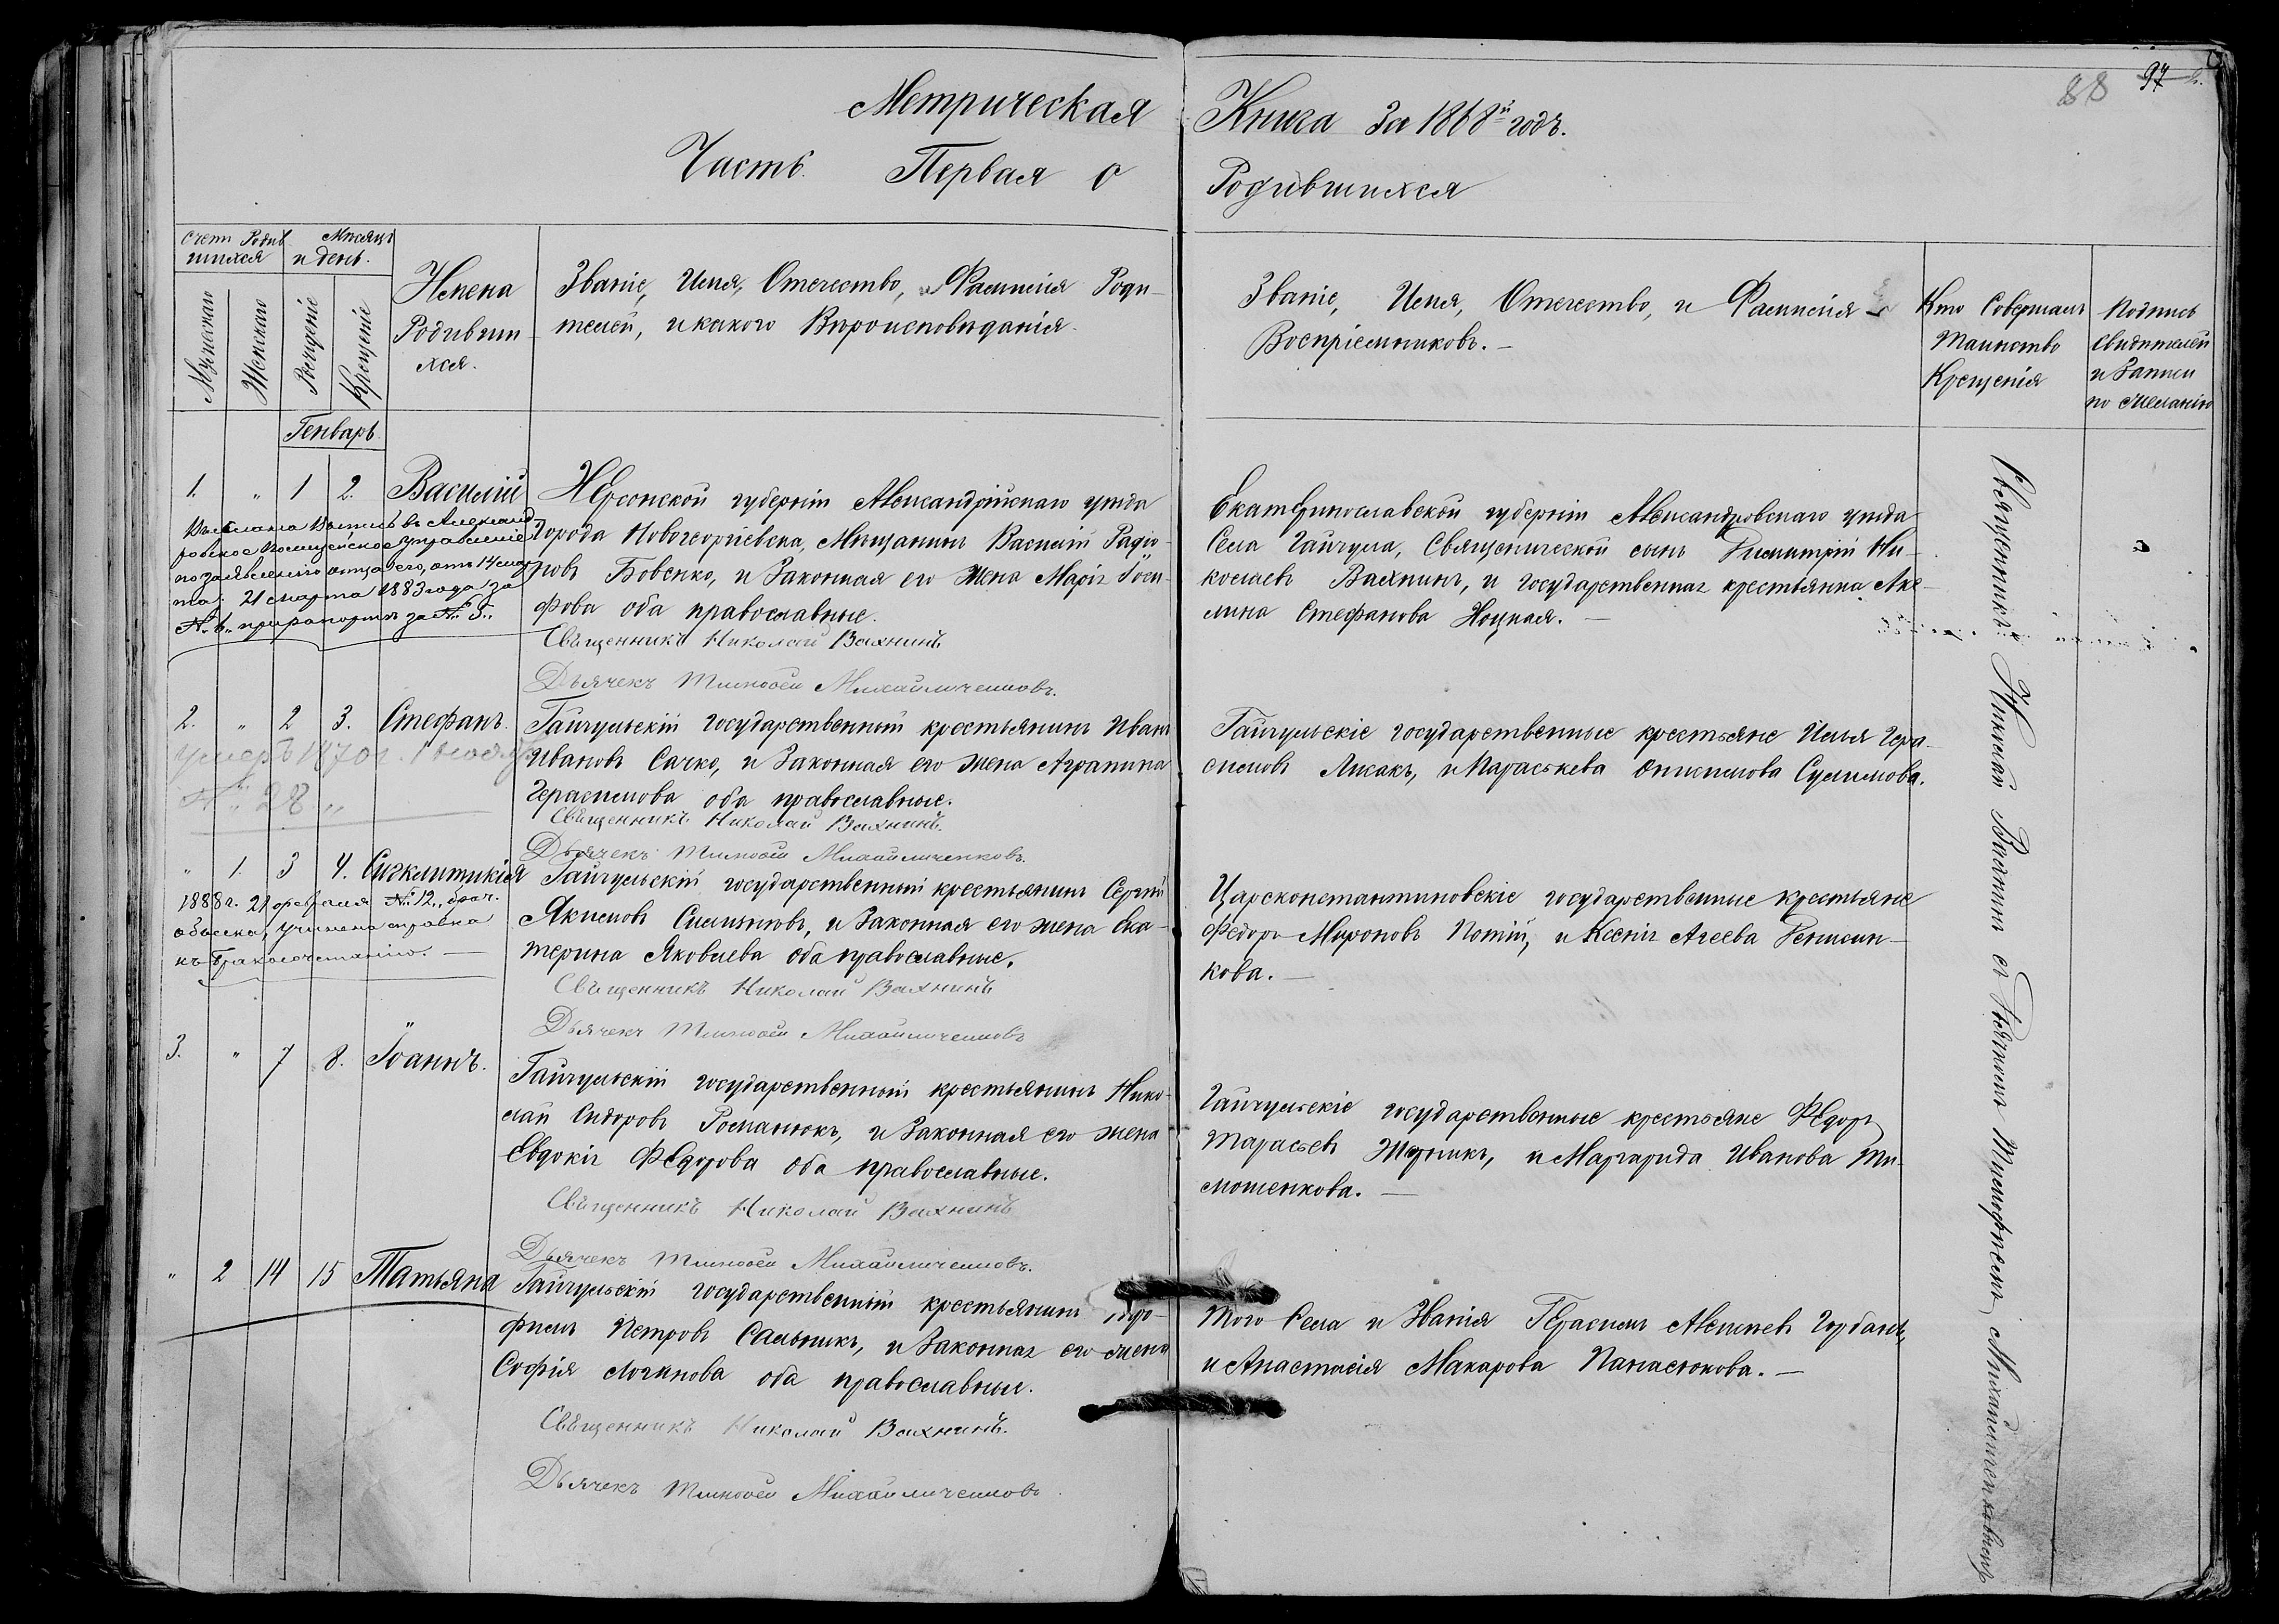 97
88
Метрическая Книга За 1868й годъ.
Часть Первая о Родившихся
Счетъ Родив
шихся
Мѣсяцъ
и день.
Мужескаго
Женскаго
Рожденіе
Крещеніе
Имена
Родивши
хся.
Званіе, Имя, Отечество, и Фамилія Роди-
телей, и какого Вѣроисповѣданія.
Званіе, Имя, Отечество, и Фамилія
Воспріемниковъ. —
Кто Совершалъ
Таинство
Крещенія
Подпись
Свидѣтелей
и Записи
по Желанію
Генварь.
1. " 1 2. Василій
Херсонской губерніи Александрійскаго уѣзда
Города Новогеоргіевска, Мѣщанинъ Василій Родіо-
новъ Бовенко, и Законная его Жена Марія Іоси-
фова оба православные.
Священникъ Николай Вахнинъ
Дьячекъ Тимофей Михайличенковъ.
Екатеринославской губерніи Александровскаго уѣзда
Села Гайчула, Священической сынъ Димитрій Ни-
колаевъ Вахнинъ, и государственная крестьянка Аке-
лина Стефанова Ноцкая. —
Выслана Выпись въ Александ-
ровское Полицейское Управленіе
по заявленію отца его, отъ 14 мар
та, 21 марта 1883 года за
№ 6. при рапортѣ за № 5.
2. " 2 3. Стефанъ.
Гайчульскій государственный крестьянинъ Иванъ
Ивановъ Сачко, и Законная его жена Агрипина
Герасимова оба православные.
Священникъ Николай Вахнинъ.
Дьячекъ Тимофей Михайличенковъ.
Гайчульскіе государственные крестьяне Илья Гера-
симовъ Лисакъ, и Параскева Онисимова Сулимова.
умеръ 1870 г. 1 ноября
№ 28 "
" 1. 3 4. Сигклитикія
Гайчульскій государственный крестьянинъ Сергѣй
Якимовъ Симыновъ, и Законная его жена Ека-
терина Яковлева оба православные.
Священникъ Николай Вахнинъ
Дьячекъ Тимофей Михайличенковъ
Царсконстантиновскіе государственные крестьяне
Федоръ Мироновъ Потій, и Ксенія Агеева Денисен-
кова. —
1888 г. 21 февраля № 12. брач.
обыска, учинена справка
къ бракосочетанію. —
3. " 7 8. Іоаннъ.
Гайчульскій государственный крестьянинъ Нико-
лай Сидоровъ Романюкъ, и Законная его жена
Евдокія Федорова оба православные.
Священникъ Николай Вахнинъ
Дьячекъ Тимофей Михайличенковъ.
Гайчульскіе государственные крестьяне Федоръ
Тарасьевъ и Маргарида Иванова Ти-
мошенкова. —
" 2 14 15 Татьяна
Гайчульскій государственный крестьянинъ
филъ Петровъ Сальникъ, и Законная его жена
Софія Логинова оба православные.
Священникъ Николай Вахнинъ.
Дьячекъ Тимофей Михайличенковъ.
Того Села и Званія Герасимъ Алексѣевъ Горбань,
и Анастасія Макарова Панасюкова. —
Священникъ Николай Вахнинъ съ Дьячкомъ Тимофеемъ Михайличенковымъ